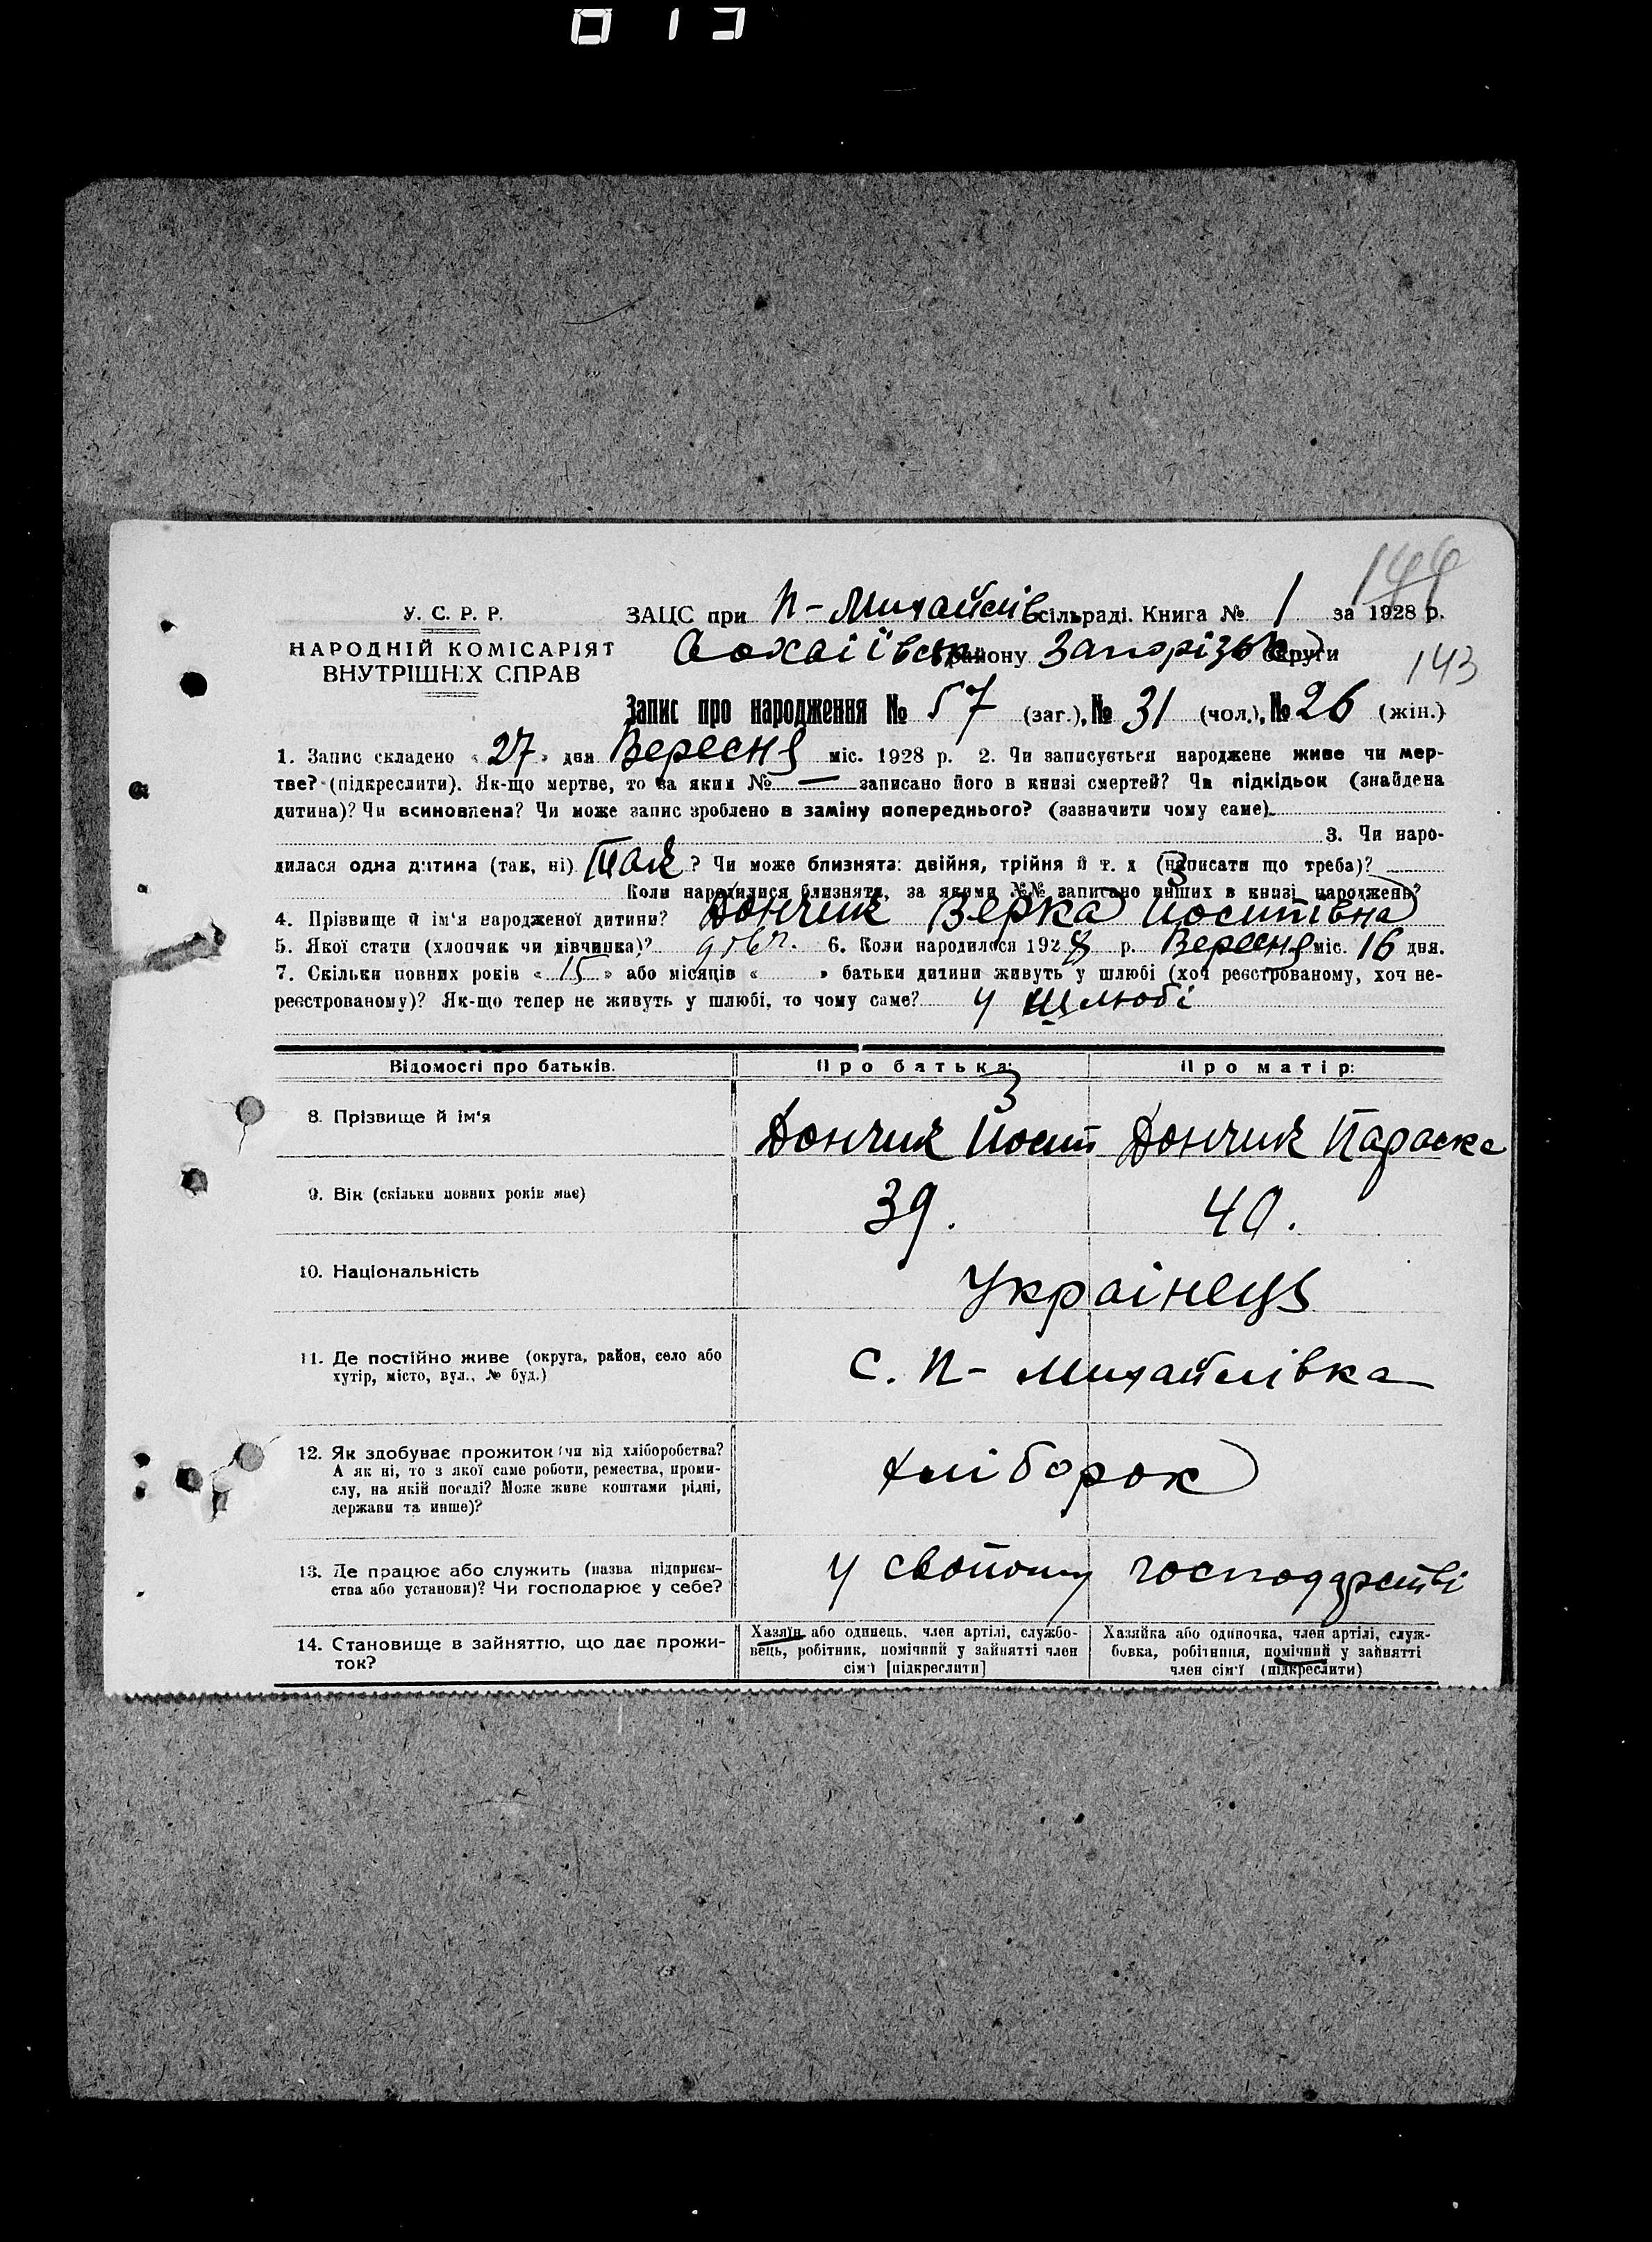 144
У. С. Р. Р.
НАРОДНІЙ КОМІСАРІЯТ
ВНУТРІШНІХ СПРАВ
ЗАЦС при П-Михайлів сільраді. Книга № 1 за 1928 р.
району Запорізьк округи
143
Запис про народження № 57 (заг.), № 31 (чол.), № 26 (жін.)
1. Запис складено «27» дня Вересня міс. 1928 р. 2. Чи записується народжене живе чи мер-
тве? (підкреслити). Як-що мертве, то за яким № — записано його в книзі смертей? Чи підкідьок (знайдена
дитина)? Чи всиновлена? Чи може запис зроблено в заміну попереднього? (зазначити чому саме)
3. Чи наро-
дилася одна дитина (так, ні) Так? Чи може близнята: двійня, трійня й т. д (написати що треба)?
Коли народилися близнята, за якими №№ записано инших в книзі народжень?
4. Прізвище й ім'я народженої дитини? Дончик Верка Йосипівна
5. Якої стати (хлопчик чи дівчинка)? дівч. 6. Коли народилося 1928 р. Вересня міс. 16 дня.
7. Скільки повних років «15» або місяців « » батьки дитини живуть у шлюбі (хоч реєстрованому, хоч не-
реєстрованому)? Як-що тепер не живуть у шлюбі, то чому саме? у шлюбі
Відомості про батьків. Про батька: Про матір:
8. Прізвище й ім'я Дончик Йосип Дончик Параска
9. Вік (скільки повних років має) 39. 40.
10. Національність Українець
11. Де постійно живе (округа, район, село або
хутір, місто, вул., № буд.) С. П-Михайлівка
12. Як здобуває прожиток (чи від хліборобства?
А як ні, то з якої саме роботи, ремества, проми-
слу, на якій посаді? Може живе коштами рідні,
держави та инше)? хлібороб
13. Де працює або служить (назва підприєм-
ства або установи)? Чи господарює у себе? у свойому господарстві
14. Становище в зайняттю, що дає прожи-
ток?
Хазяїн або одинець, член артілі, службо-
вець, робітник, помічний у зайнятті член
сім'ї [підкреслити]
Хазяйка або одиночка, член артілі, служ-
бовка, робітниця, помічний у зайнятті
член сім'ї (підкреслити)